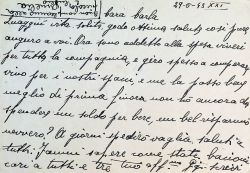 29-6-43 XXI
Cara Carla
Quaggiù solito godo ottima salute così pure
auguro a voi. Ora sono addetto alla spesa viveri
per tutta la compagnia, e giro spesso a compera
vino per i nostri spacci e me la passo bene
meglio di prima finora non ho ancora
spendere un soldo per bere, un bel risparmio
nevvero? A giorni spedirò vaglia, saluti a
tutti. Fammi sapere come state bacioni
cari a tutti e tre tuo aff.mo